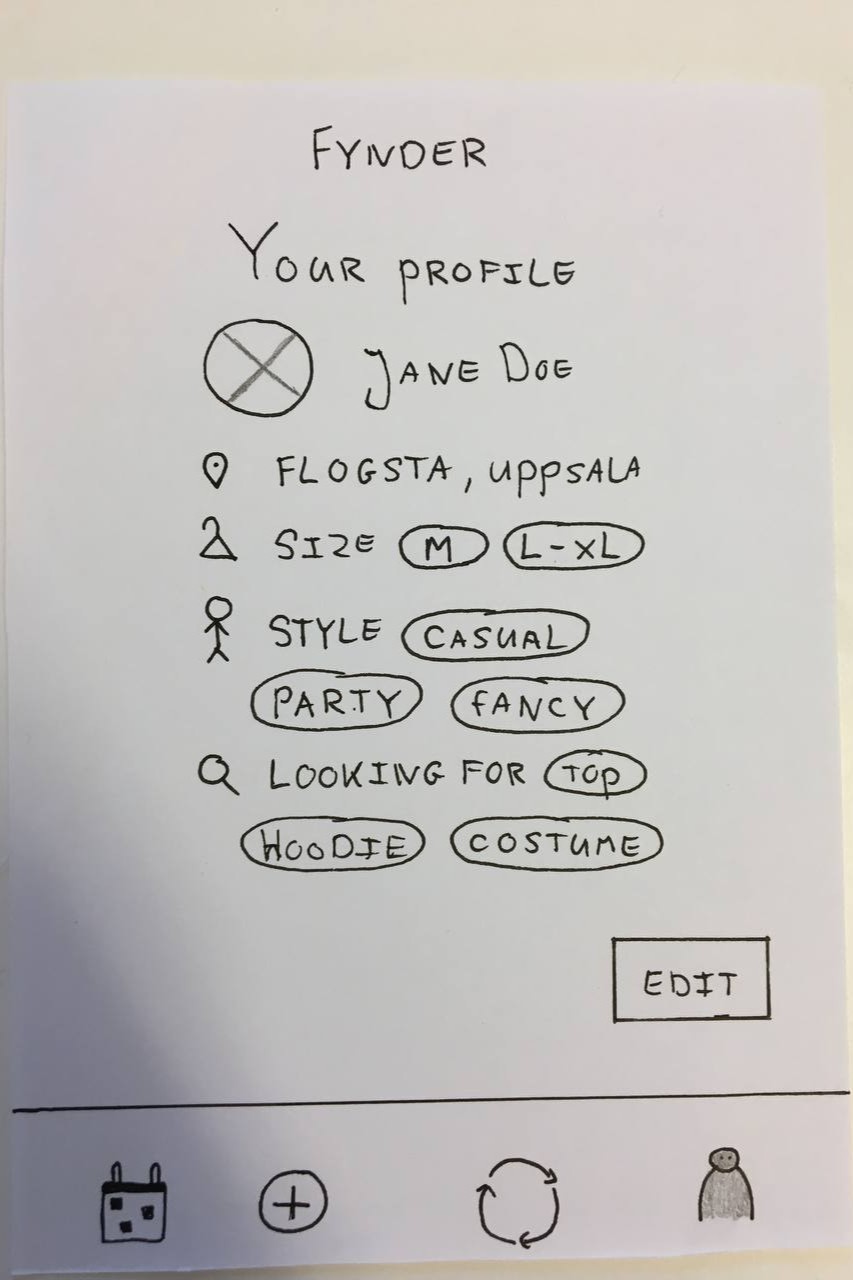 FYNDER
YOUR PROFILE
JANE DOE
FLOGSTA, UPPSALA
SIZE M L-XL
STYLE CASUAL
PARTY FANCY
LOOKING FOR TOP
HOODIE COSTUME
EDIT